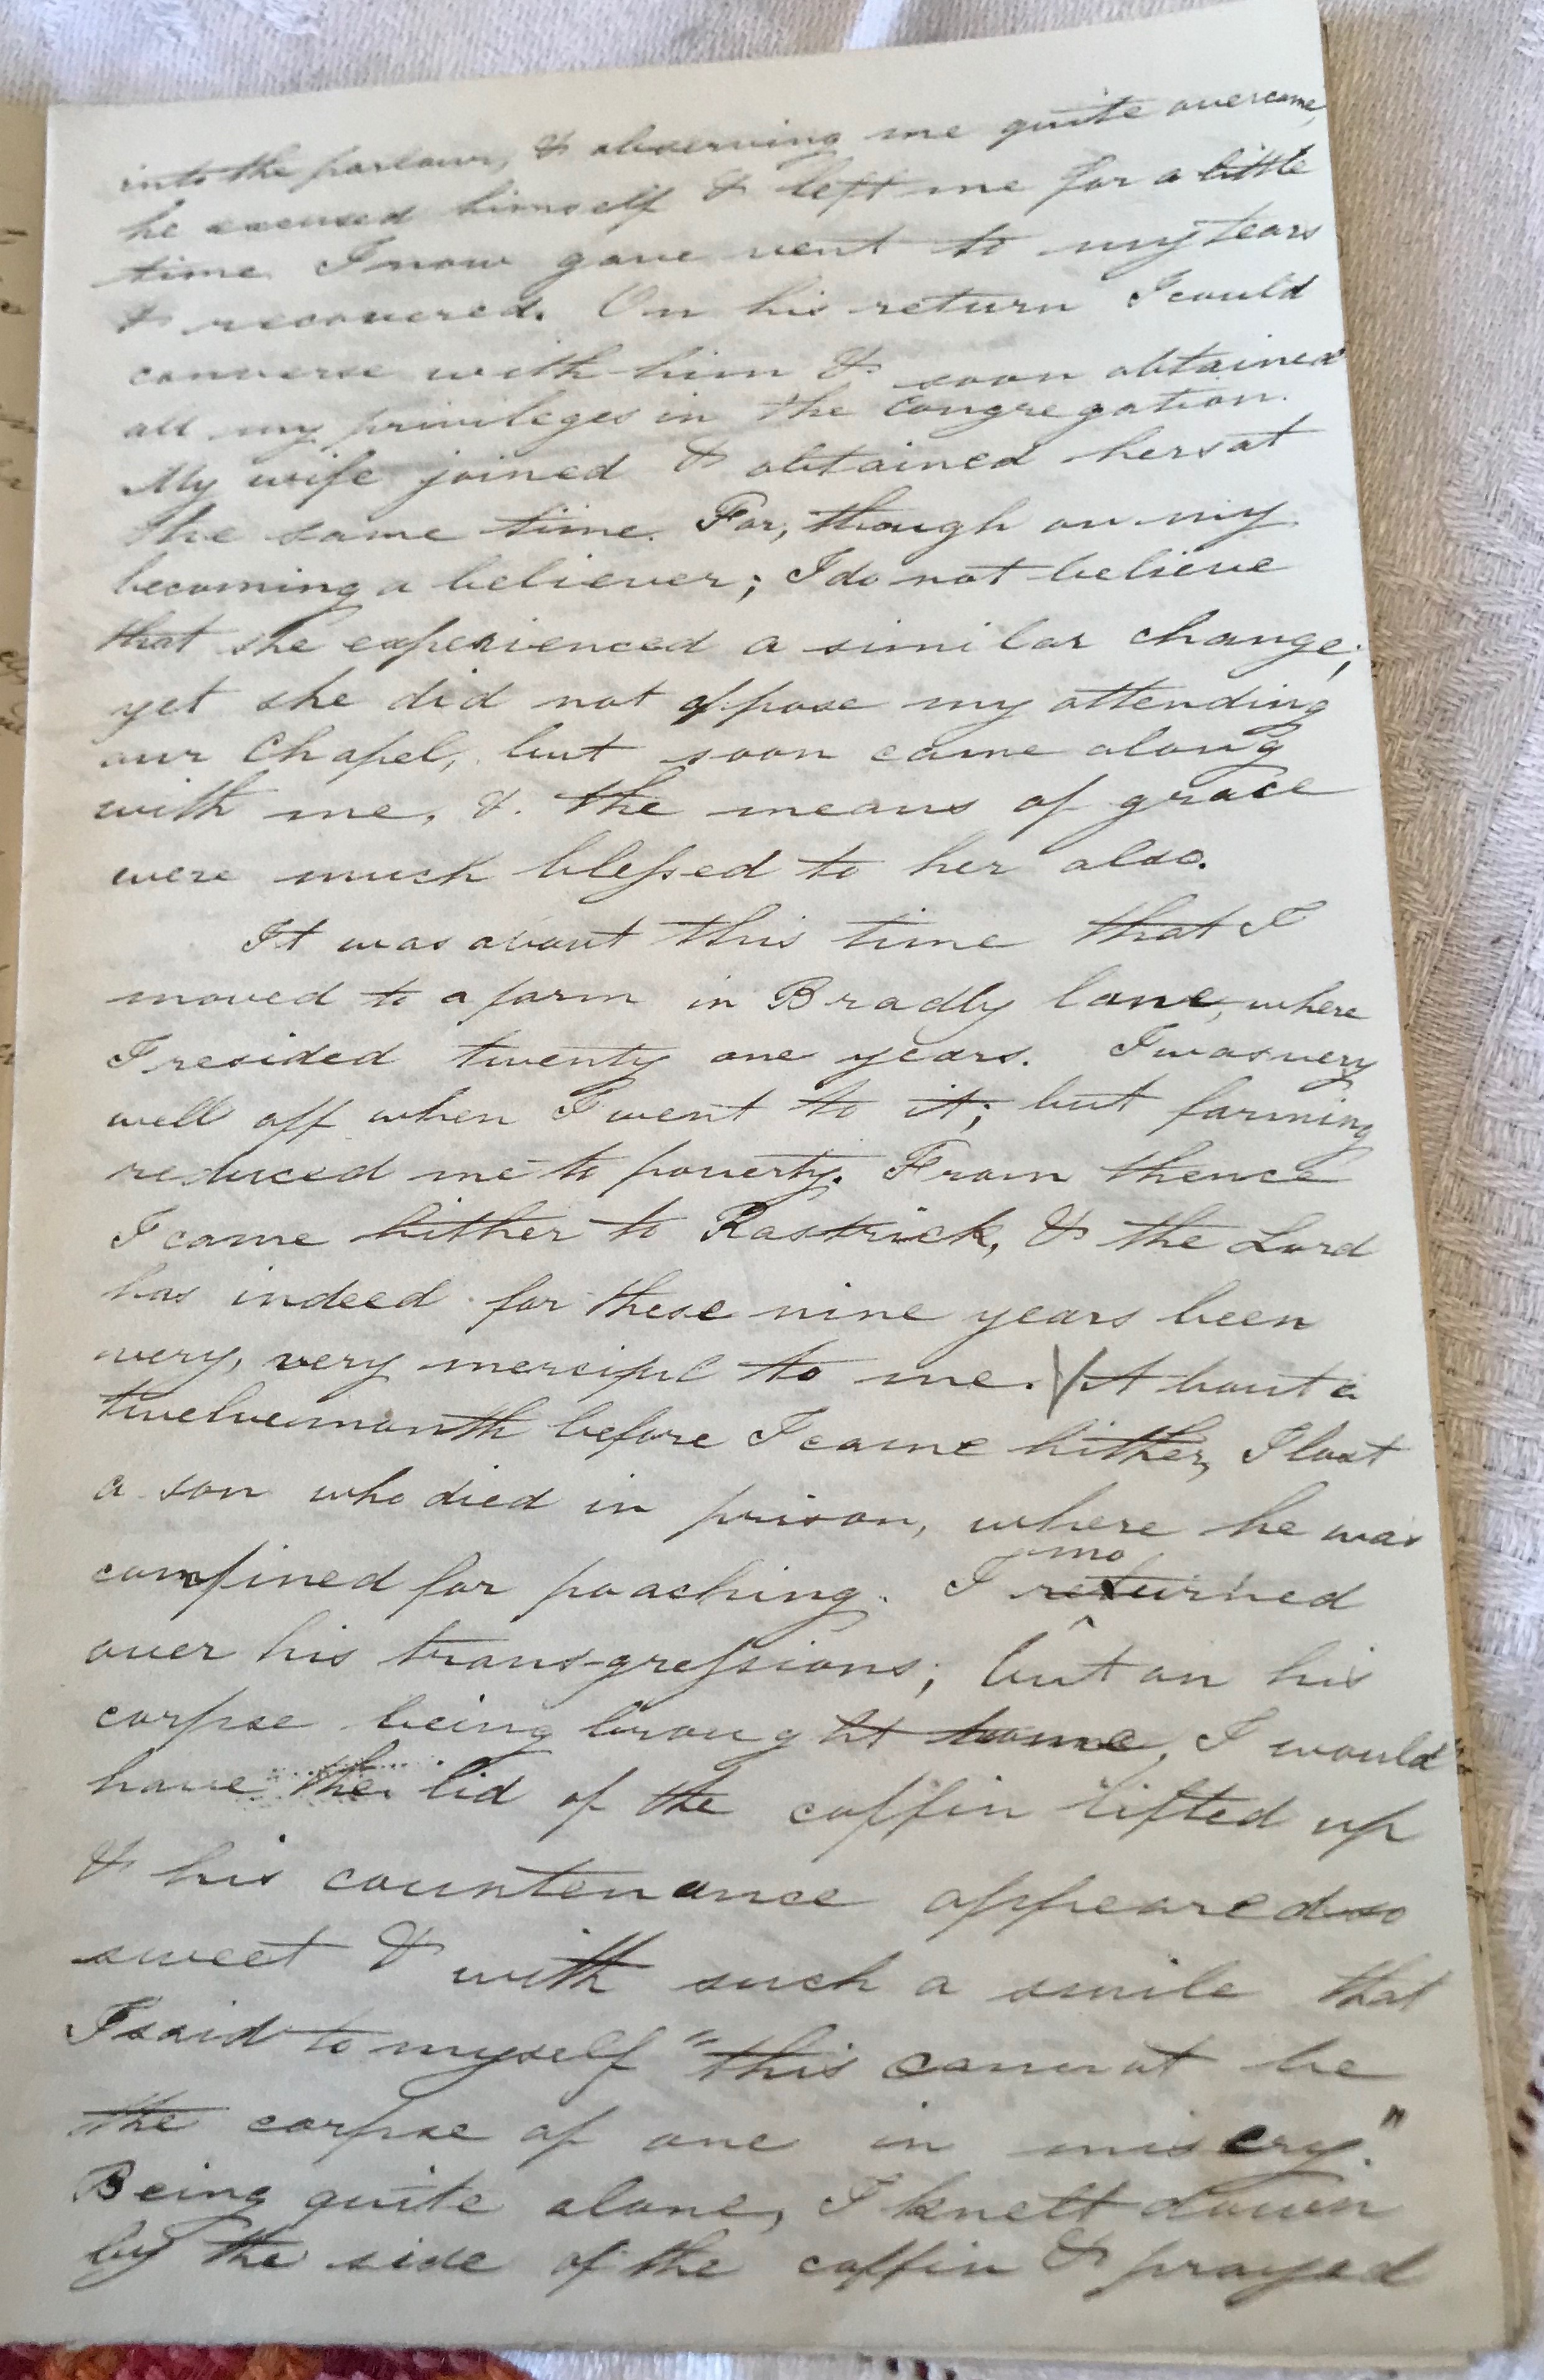 into the parlour, & observing me quite overcome,
he excused himself & left me for a little
time. I now gave vent to my tears
& recovered. On his return I could
converse with him & soon obtained
all my privileges in the Congregation.
My wife joined & obtained hers at
the same time. For, though on my
becoming a believer; I do not believe
that she experienced a similar change;
yet she did not oppose my attending
our Chapel, but soon came along
with me, & the means of grace
were much blessed to her also.
It was about this time that I
moved to a farm in Bradly lane, where
I resided twenty one years. I was very
well off when I went to it; but farming
reduced me to poverty. From thence
I came hither to Rastrick, & the Lord
has indeed for these nine years been
very, very merciful to me. \/ About a
twelvemonth before I came hither, I lost
a son who died in prison, where he was
confined for poaching. I
mo
returned
over his trans-gressions; but on his
corpse being brought home, I would
have the lid of the coffin lifted up
& his countenance appeared so
sweet & with such a smile that
I said to myself "this cannot be
the corpse of one in misery."
Being quite alone, I knelt down
by the side of the coffin & prayed